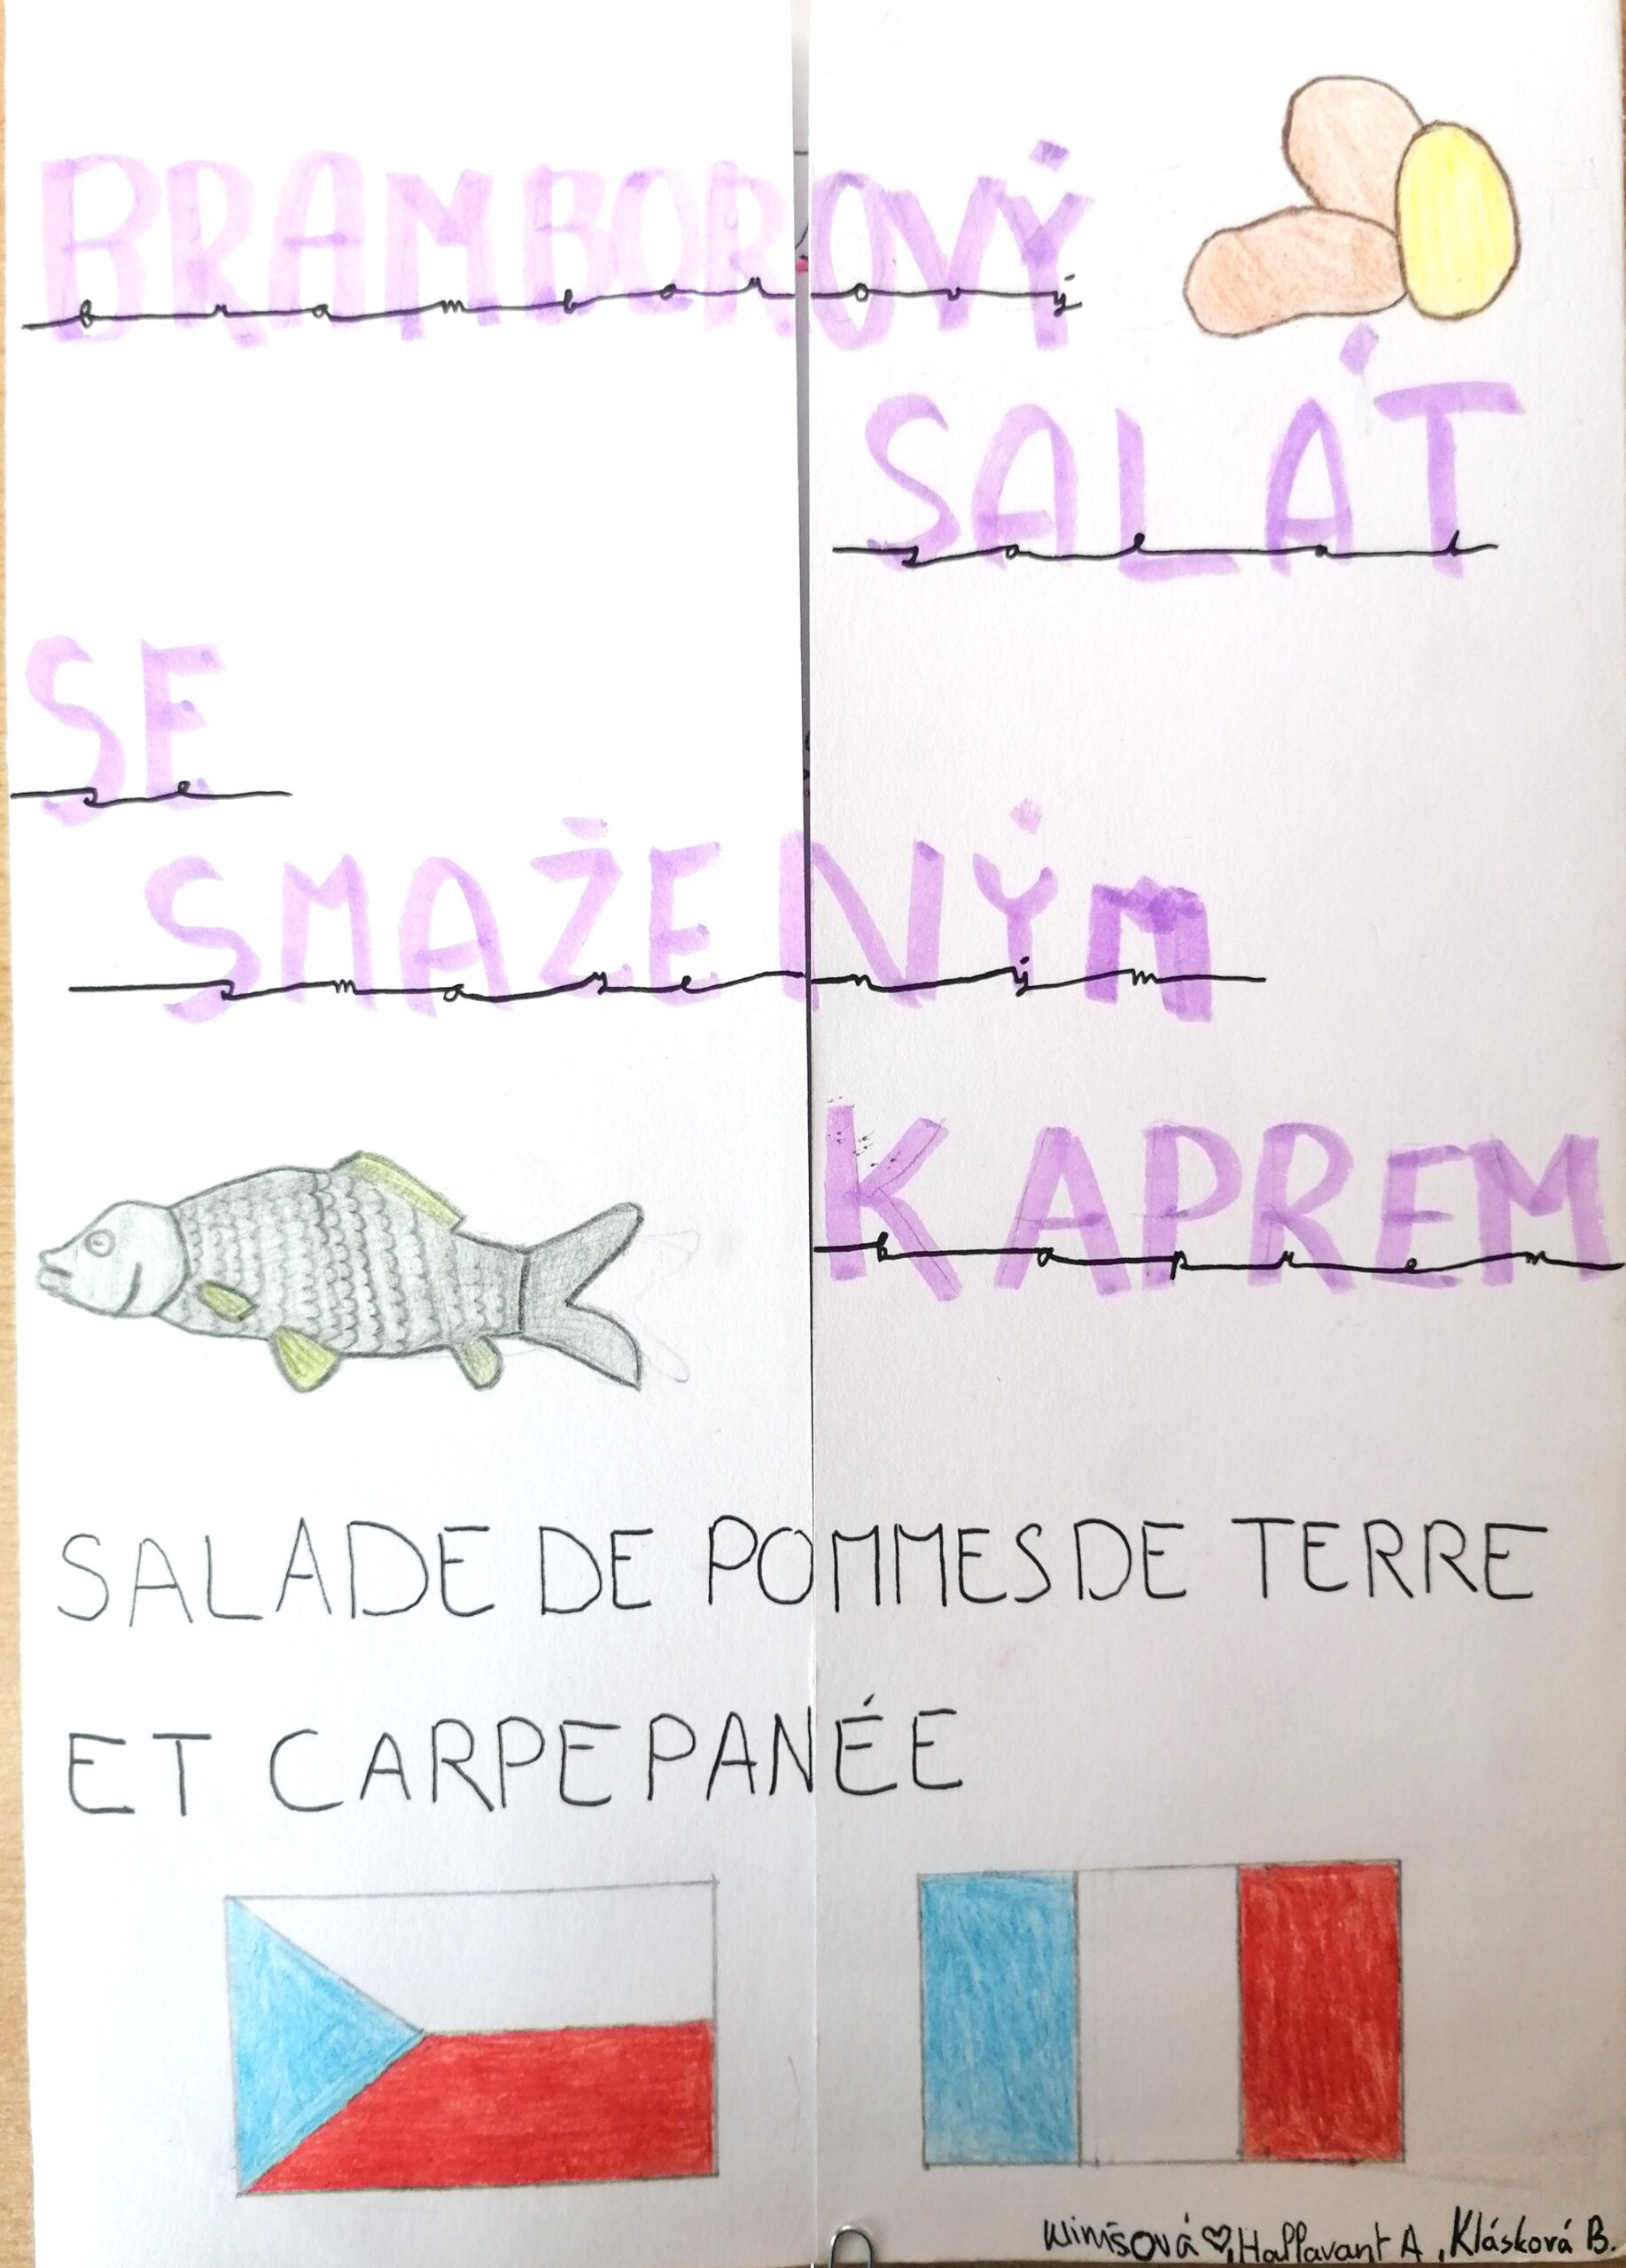 BRAMBOROVÝ
bramborový
SALÁT
salat
SE
se
SMAŽENÝM
smazeným
KAPREM
kaprem
SALADE DE POMMES DE TERRE
ET CARPE PANÉE
♡, Hallavant A, Klásková B.